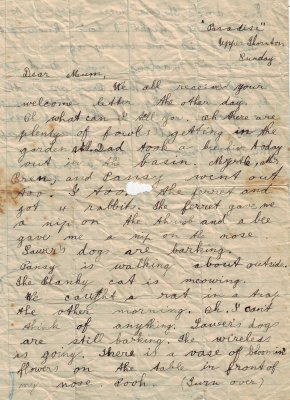 "Paradise"
Upper Thornton
Sunday
Dear Mum,
We all received your
welcome letter the other day.
Oh what can I tell for. Oh there are
plenty of fowls getting in the
garden. Dad took a beehive today
out in the basin. Myrtle,
Bran, and Pansy went out
too. I took the ferret and
got 4 rabbits. The ferret gave me
a nip on the thumb and a bee
gave me a nip on the nose.
Lawer's dogs are barking.
Pansy is walking about outside.
The Blanky cat is meowing.
We caught a rat in a trap
the other morning. Oh, I cant
think of anything. Lawer's dogs
are still barking. The wireless
is going. There is a vase of bloomin'
flowers on the table in front of
my nose. Pooh. (Turn over)